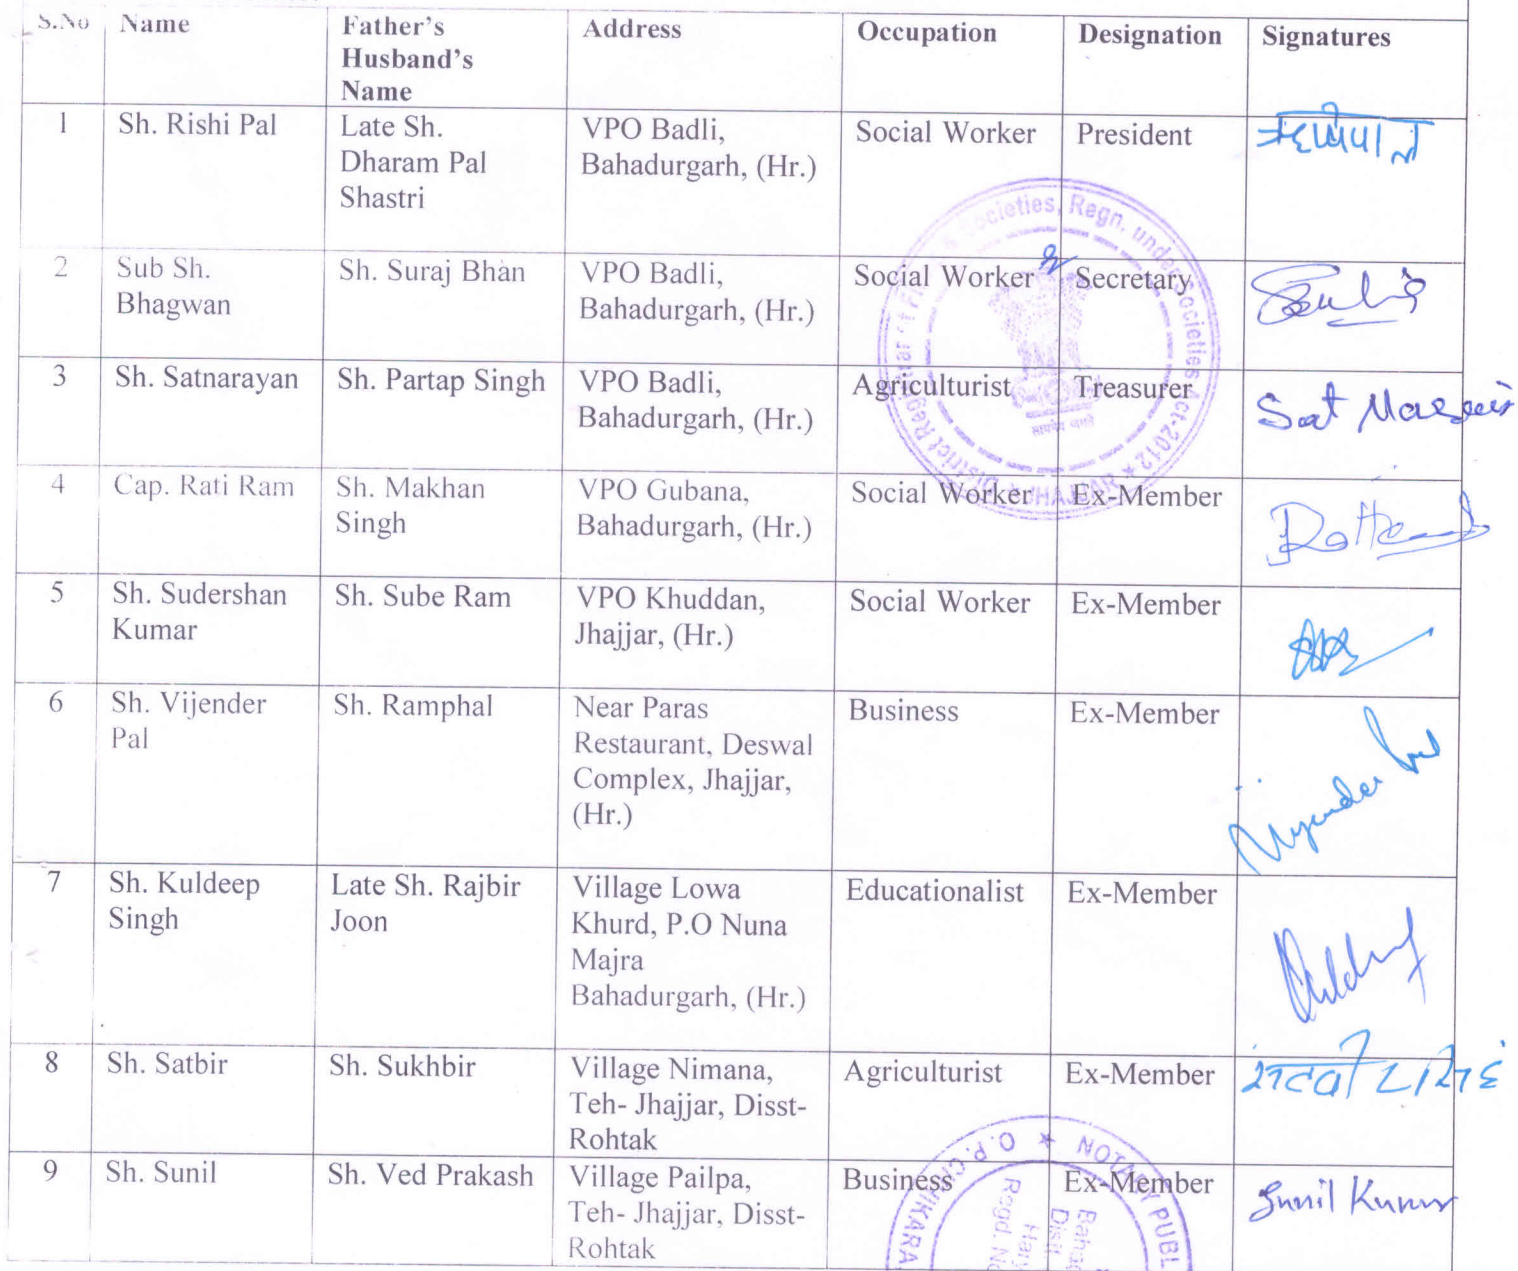 S.No Name Father's Husband's Name Address Occupation Designation Signatures
1 Sh. Rishi Pal Late Sh. Dharam Pal Shastri VPO Badli, Bahadurgarh, (Hr.) Social Worker President
2 Sub Sh. Bhagwan Sh. Suraj Bhan VPO Badli, Bahadurgarh, (Hr.) Social Worker Secretary
3 Sh. Satnarayan Sh. Partap Singh VPO Badli, Bahadurgarh, (Hr.) Agriculturist Treasurer
4 Cap. Rati Ram Sh. Makhan Singh VPO Gubana, Bahadurgarh, (Hr.) Social Worker Ex-Member
5 Sh. Sudershan Kumar Sh. Sube Ram VPO Khuddan, Jhajjar, (Hr.) Social Worker Ex-Member
6 Sh. Vijender Pal Sh. Ramphal Near Paras Restaurant, Deswal Complex, Jhajjar, (Hr.) Business Ex-Member
7 Sh. Kuldeep Singh Late Sh. Rajbir Joon Village Lowa Khurd, P.O Nuna Majra Bahadurgarh, (Hr.) Educationalist Ex-Member
8 Sh. Satbir Sh. Sukhbir Village Nimana, Teh- Jhajjar, Disst- Rohtak Agriculturist Ex-Member
9 Sh. Sunil Sh. Ved Prakash Village Pailpa, Teh- Jhajjar, Disst- Rohtak Business Ex-Member Sunil Kumar
Societies, Regn. under Societies Act-2012 ★ JHAJJAR ★ District
सत्यमेव जयते
O.P. ★ NOTARY PUBL
Regd. No